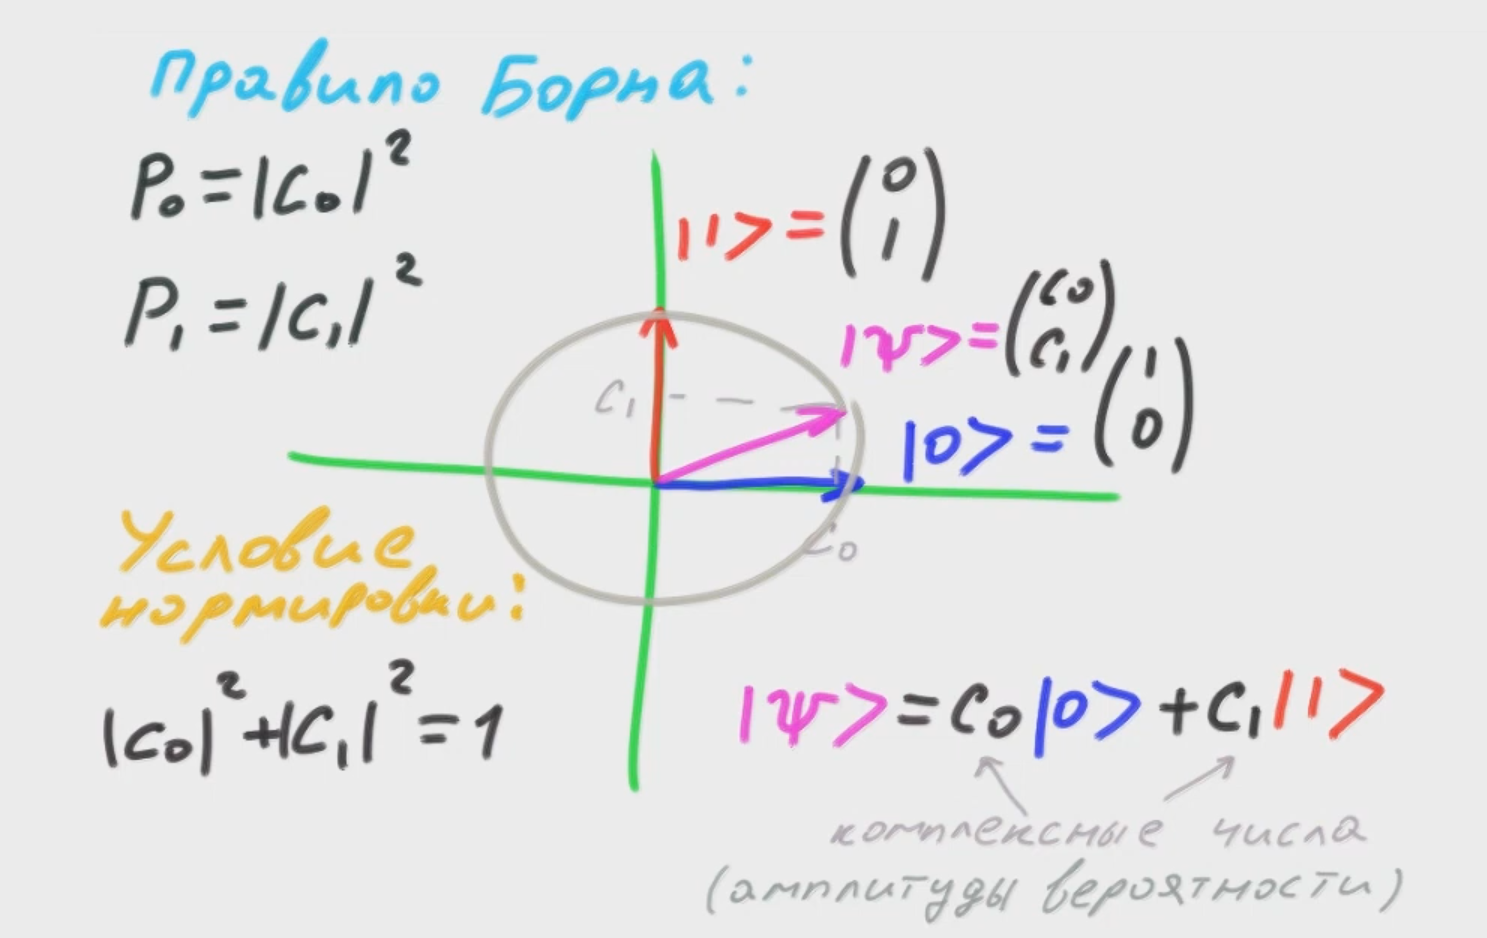 Правило Борна:
P₀ = |C₀|²
P₁ = |C₁|²
|1> = (0 1)
|ψ> = (C₀ C₁)
|0> = (1 0)
C₁
C₀
Условие
нормировки:
|C₀|² + |C₁|² = 1
|ψ> = C₀|0> + C₁|1>
комплексные числа
(амплитуды вероятности)